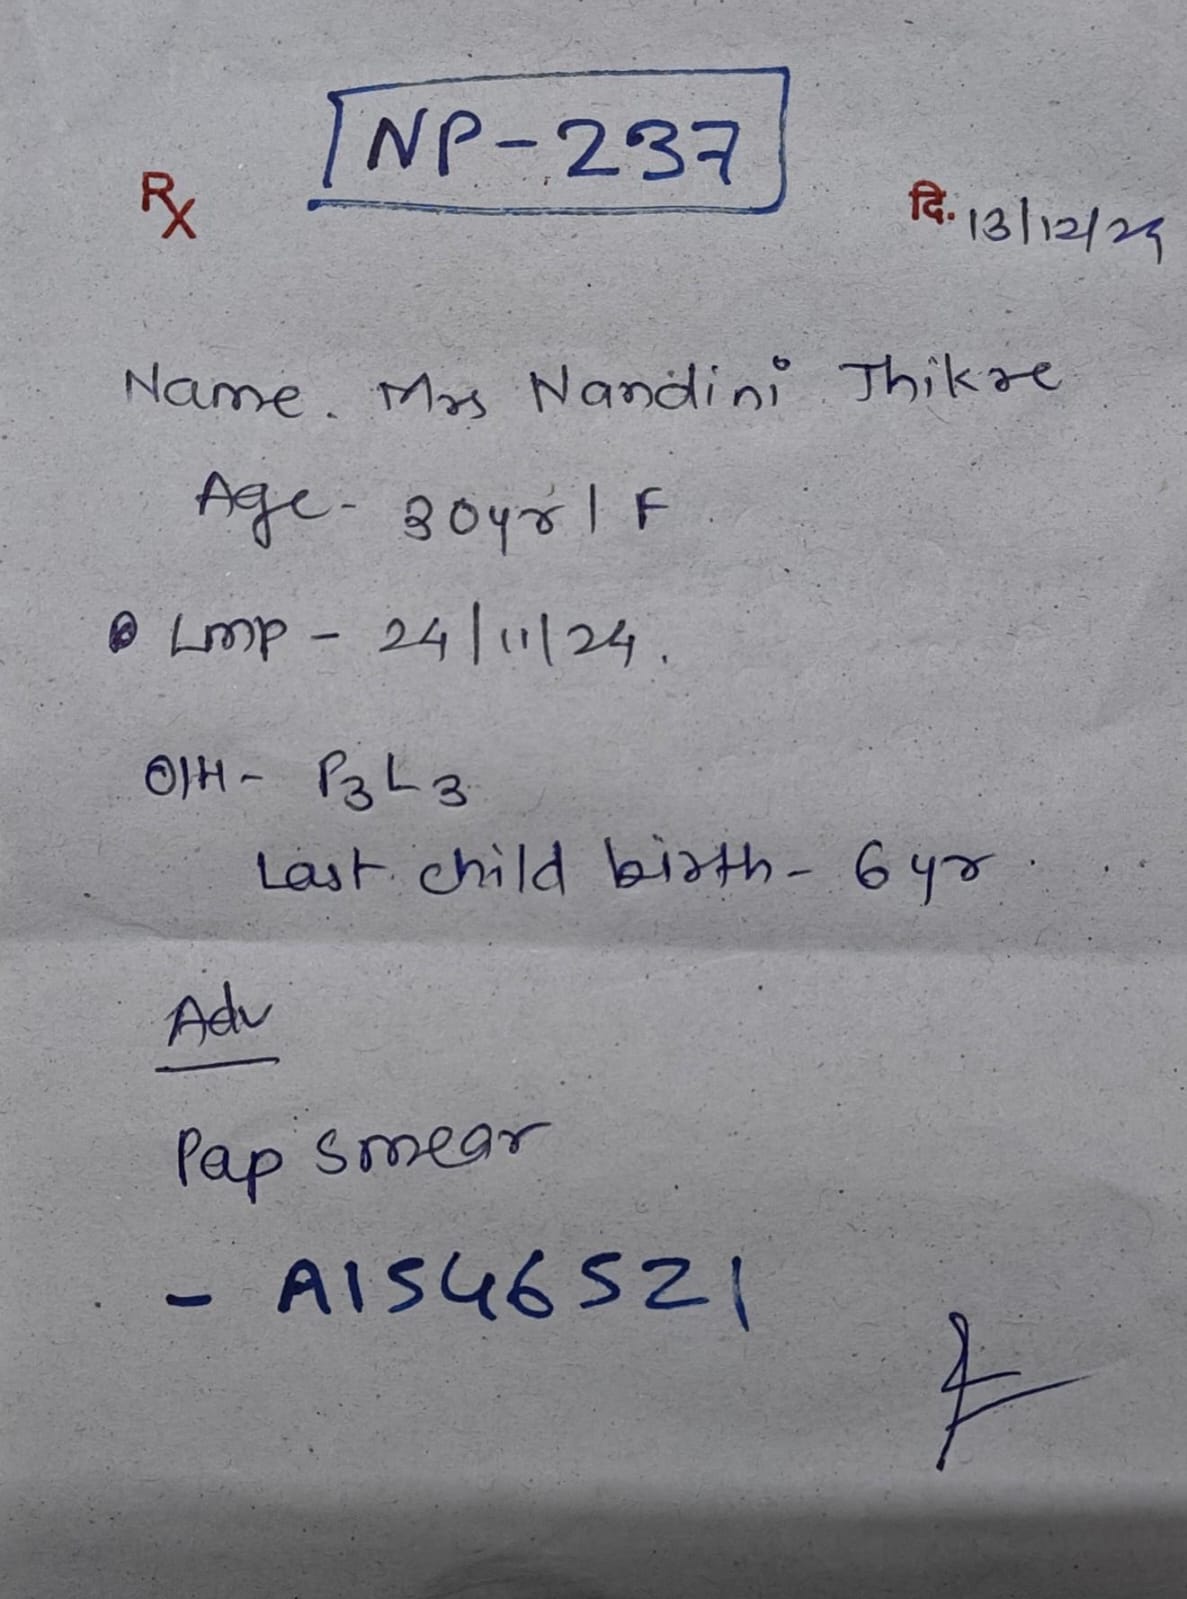 NP-237
Rx
दि. 13/12/24
Name. Mrs Nandini Thikre
Age- 30yr | F
LMP - 24/11/24.
O/H- P3L3
Last child birth- 6 yr
Adv
Pap smear
- A1546521